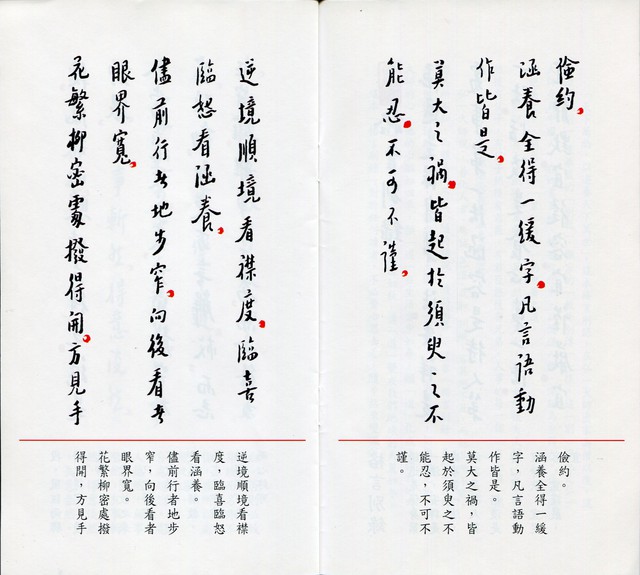 儉約。
涵養全得一緩字凡言語動
作皆是。
莫大之禍。皆起於須臾之不
能忍。不可不謹。
儉約。
涵養全得一緩
字，凡言語動
作皆是。
莫大之禍，皆
起於須臾之不
能忍，不可不
謹。
逆境順境看襟度。臨喜
臨怒看涵養。
儘前行者地步窄。向後看者
眼界寬。
花繁柳密處撥得開。方見手
逆境順境看襟
度，臨喜臨怒
看涵養。
儘前行者地步
窄，向後看者
眼界寬。
花繁柳密處撥
得開，方見手